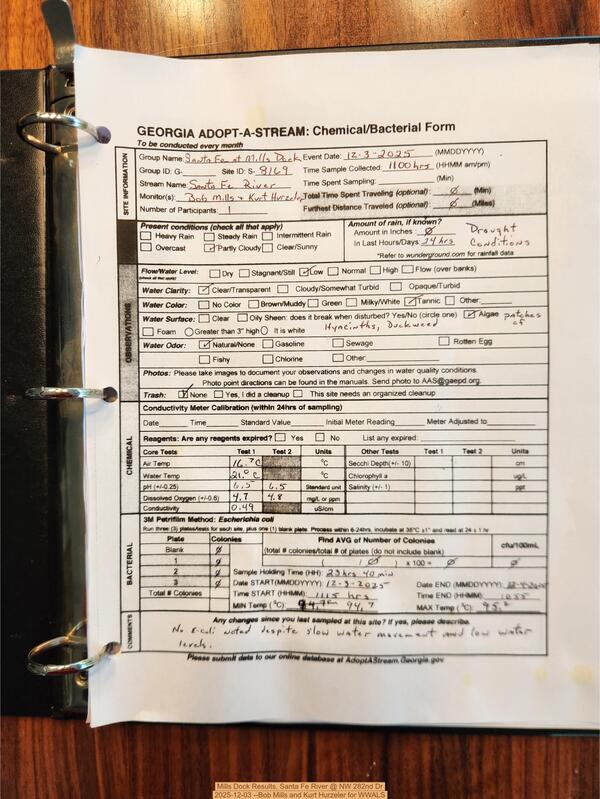 GEORGIA ADOPT-A-STREAM: Chemical/Bacterial Form
To be conducted every month
SITE INFORMATION
Group Name: Santa Fe at Mills Dock Event Date: 12-3-2025 (MMDDYYYY)
Group ID: G- Site ID: S- 8169 Time Sample Collected: 1100 hrs (HHMM am/pm)
Stream Name: Santa Fe River Time Spent Sampling: (Min)
Monitor(s): Bob Mills + Kurt Hurzeler Total Time Spent Traveling (optional): Ø (Min)
Number of Participants: 1 Furthest Distance Traveled (optional): Ø (Miles)
Present conditions (check all that apply) Amount of rain, if known?
Heavy Rain Steady Rain Intermittent Rain Amount in Inches: Ø Drought
Overcast Partly Cloudy Clear/Sunny In Last Hours/Days: 24 hrs Conditions
*Refer to wunderground.com for rainfall data
OBSERVATIONS
Flow/Water Level: Dry Stagnant/Still Low Normal High Flow (over banks)
(check all that apply)
Water Clarity: Clear/Transparent Cloudy/Somewhat Turbid Opaque/Turbid
Water Color: No Color Brown/Muddy Green Milky/White Tannic Other:
Water Surface: Clear Oily Sheen: does it break when disturbed? Yes/No (circle one) Algae patches of
Foam Greater than 3" high It is white Hyacinths, Duckweed
Water Odor: Natural/None Gasoline Sewage Rotten Egg
Fishy Chlorine Other:
Photos: Please take images to document your observations and changes in water quality conditions.
Photo point directions can be found in the manuals. Send photo to AAS@gaepd.org.
Trash: None Yes, I did a cleanup This site needs an organized cleanup
CHEMICAL
Conductivity Meter Calibration (within 24hrs of sampling)
Date Time Standard Value Initial Meter Reading Meter Adjusted to
Reagents: Are any reagents expired? Yes No List any expired:
Core Tests Test 1 Test 2 Units Other Tests Test 1 Test 2 Units
Air Temp 16.7 C °C Secchi Depth(+/- 10) cm
Water Temp 21.0 C °C Chlorophyll a ug/L
pH (+/-0.25) 6.5 6.5 Standard unit Salinity (+/- 1) ppt
Dissolved Oxygen (+/-0.6) 4.7 4.8 mg/L or ppm
Conductivity 0.49 uS/cm
BACTERIAL
3M Petrifilm Method: Escherichia coli
Run three (3) plates/tests for each site, plus one (1) blank plate. Process within 6-24hrs, incubate at 35°C ±1° and read at 24 ± 1 hr
Plate Colonies Find AVG of Number of Colonies cfu/100mL
Blank Ø (total # colonies/total # of plates (do not include blank)
Ø ( / Ø ) x 100 = Ø Ø
2 Ø Sample Holding Time (HH): 23 hrs 40 min
3 Ø Date START(MMDDYYYY): 12-3-2025 Date END (MMDDYYYY): 12-4-2025
Total # Colonies Time START (HHMM): 1115 hrs Time END (HHMM): 1055
MIN Temp (°C): 94.7 MAX Temp (°C): 95.2
COMMENTS
Any changes since you last sampled at this site? If yes, please describe.
No E-coli noted despite slow water movement and low water
levels.
Please submit data to our online database at AdoptAStream.Georgia.gov
Mills Dock Results, Santa Fe River @ NW 282nd Dr
2025-12-03 --Bob Mills and Kurt Hurzeler for WWALS